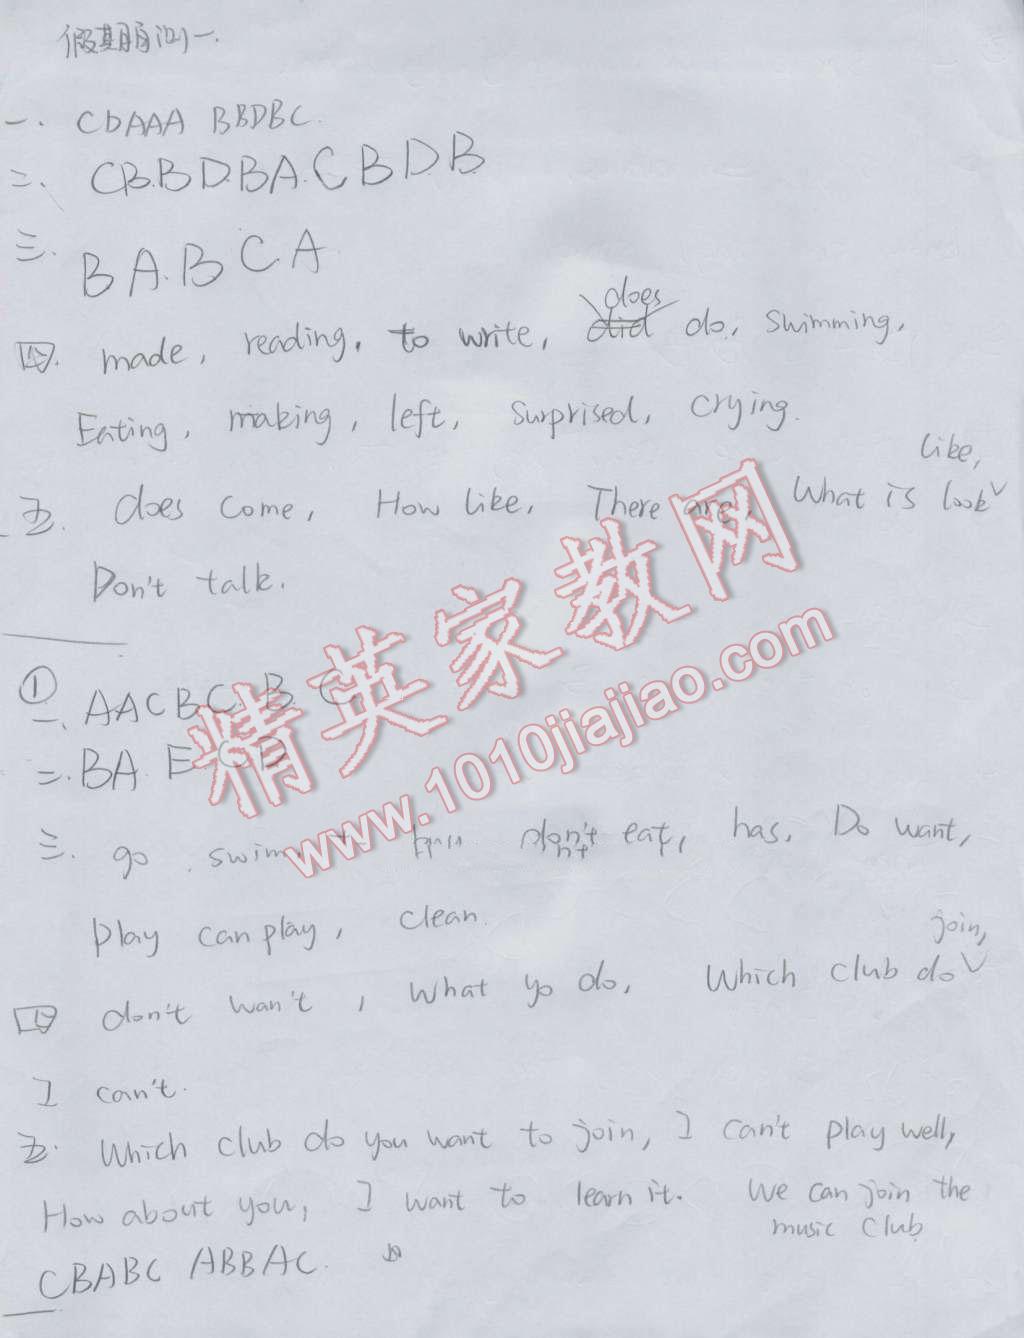 假期自测一.
一. CDAAA BBDBC.
二. CB.BDBA.CBDB
三. BA.BCA
does
四. made, reading, to write, did do, swimming,
Eating, making, left, surprised, crying.
like,
五. does come, How like, There are, What is look
Don't talk.
①
一. AACBC.B.C
二. BA.ECD
三. go swim don't eat, has, Do want,
play can play, clean.
join,
四 don't wan't, what yo do, Which club do
I can't.
五. Which club do you want to join, I can't play well,
How about you, I want to learn it. We can join the
music club
CBABC ABBAC.
精英家教网
www.1010jiajiao.com